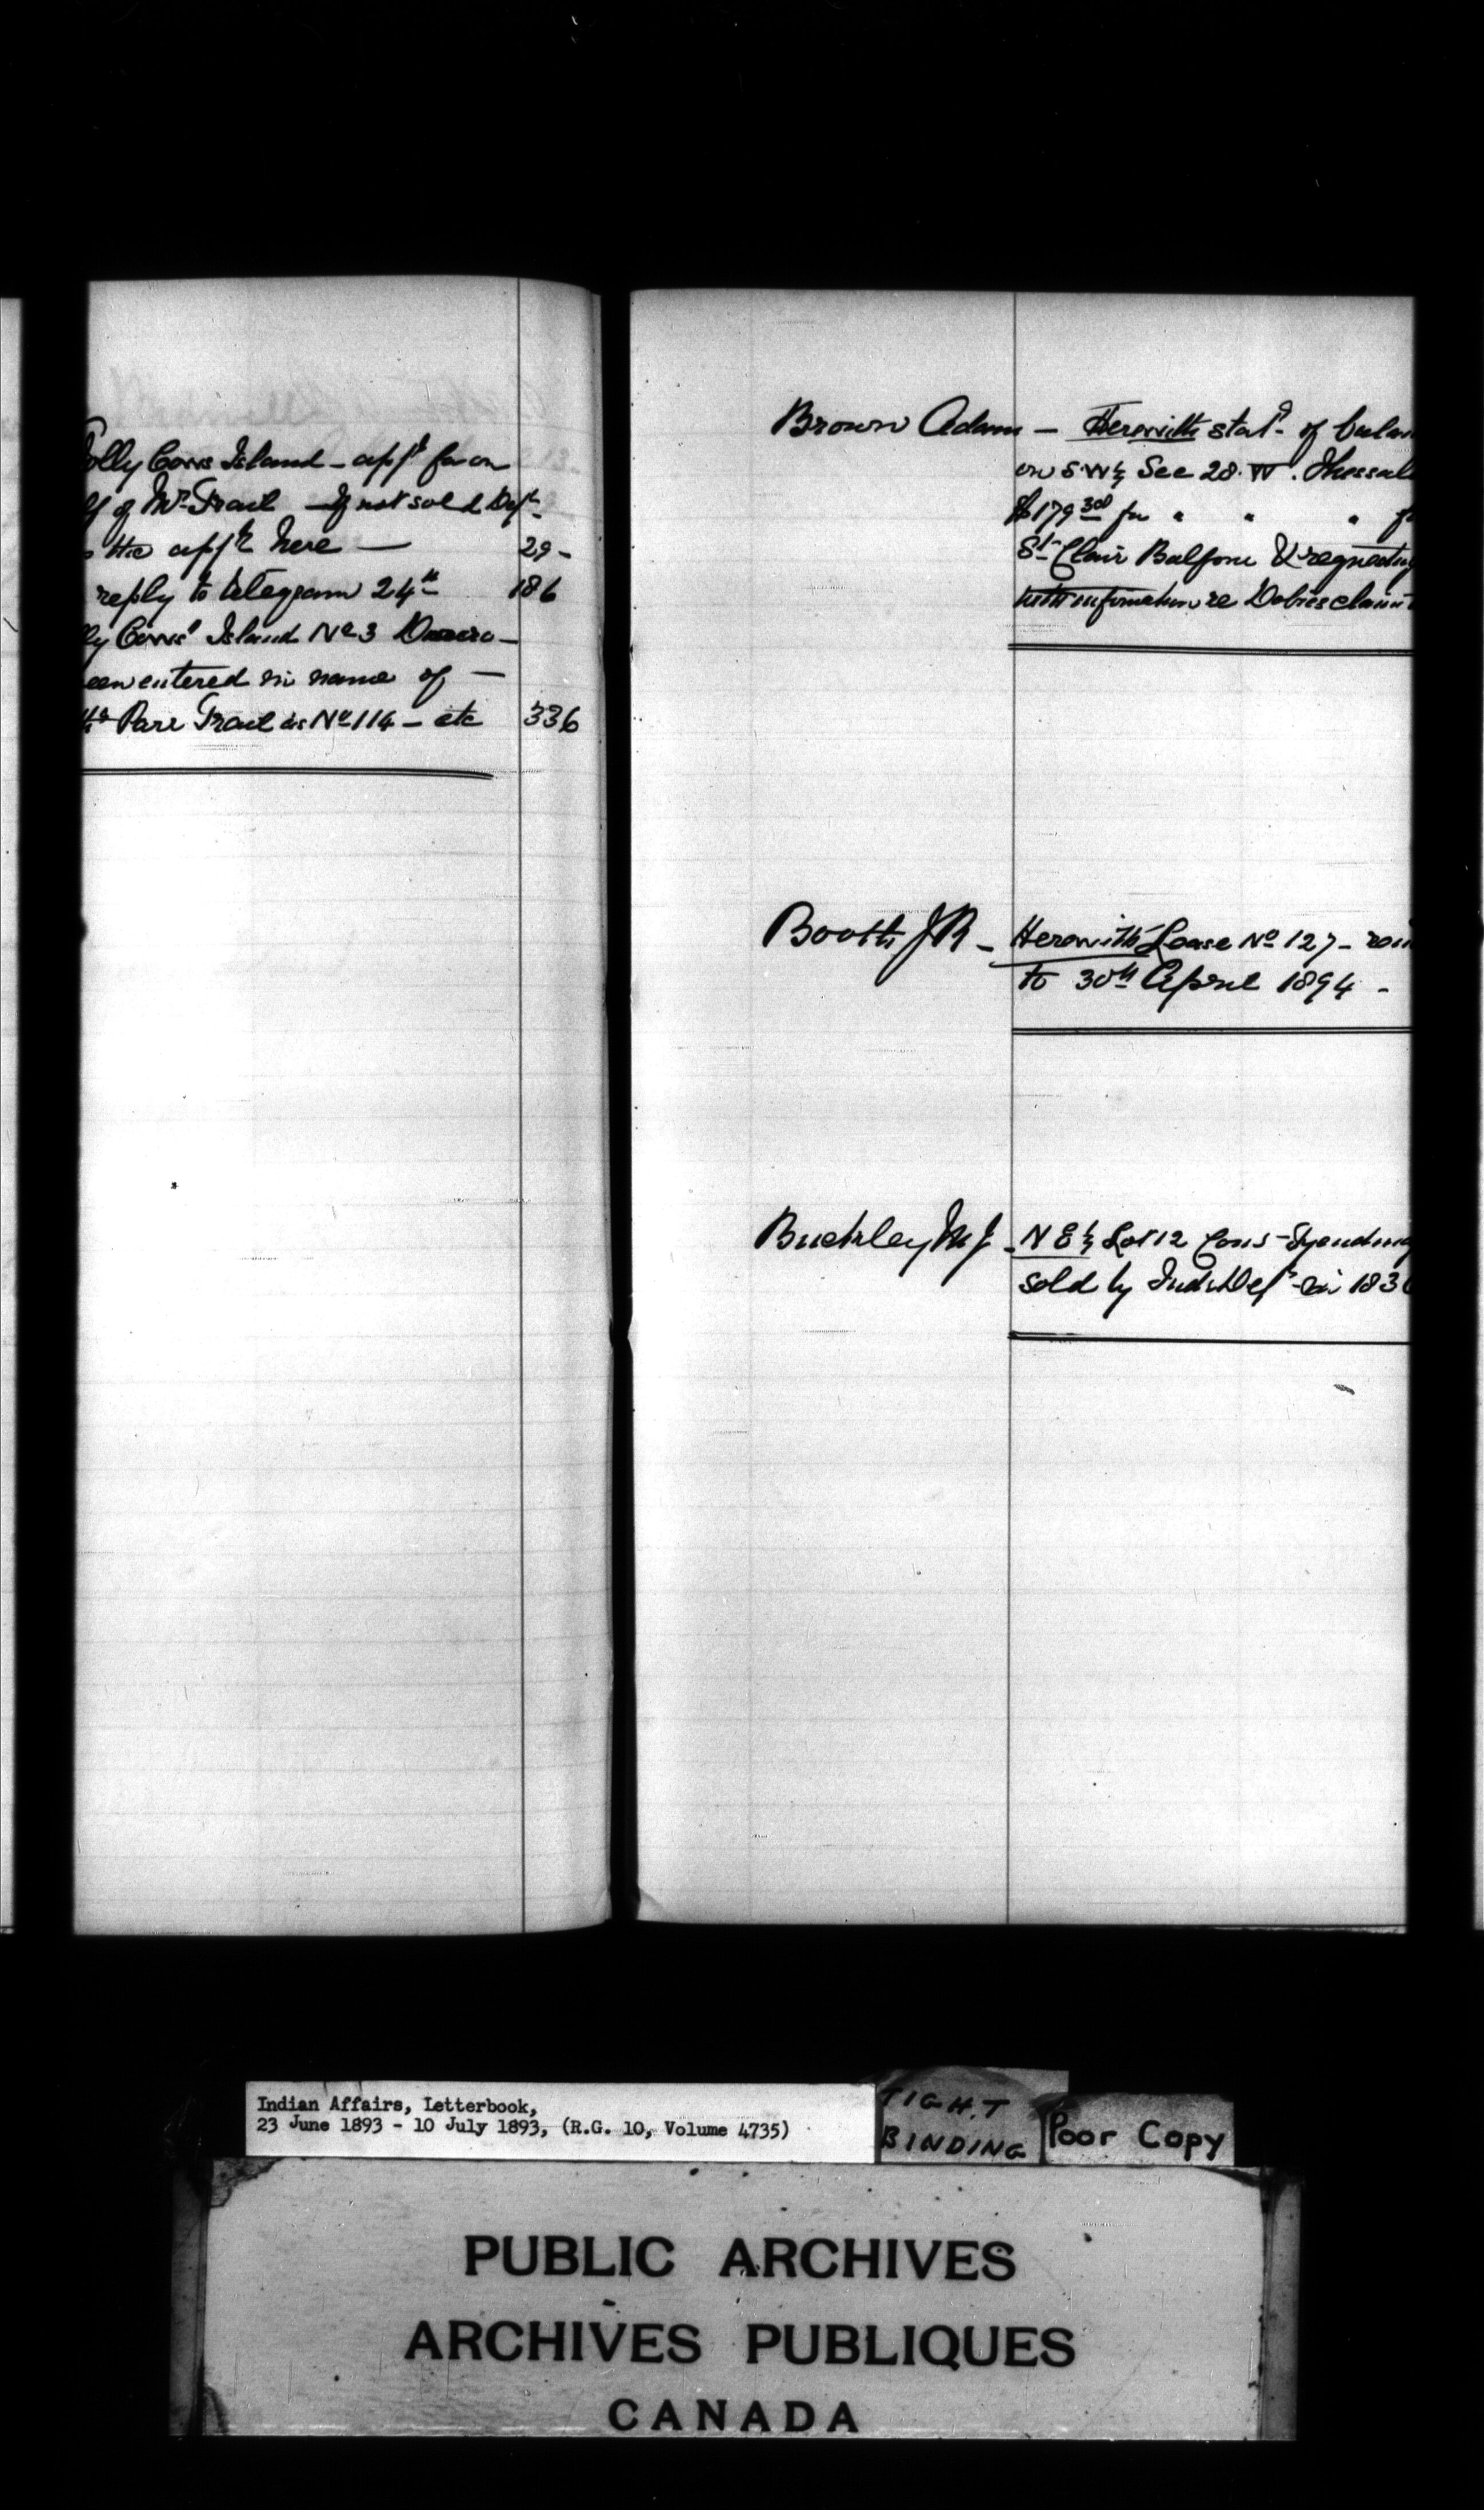 olly Cows Island - appd for on
lf of Mrs Trail - If not sold Dept
the appn here - 29 -
reply to telegram 24th 186
ly Cows' Island No 3 Dummer -
een entered in name of -
Parr Trail as No 114 - etc 336
Brown Adam - Herewith statt of balan
on S.W¼ Sec 28. W. Thessal
$179 30 for " " "
St Clair Balfour & requesting
with information re Dobies claim
Booth J R - Herewith Lease No 127 -
to 30th April 1894 -
Buckley M J - N E ¼ Lot 12 Con 5 - Syendin
sold by Ind. Dept in 183
Indian Affairs, Letterbook,
23 June 1893 - 10 July 1893, (R.G. 10, Volume 4735)
TIGHT
BINDING
Poor Copy
PUBLIC ARCHIVES
ARCHIVES PUBLIQUES
CANADA